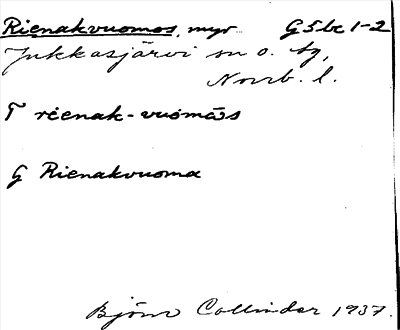 Rienakvuomos, myr G5bc1-2
Jukkasjärvi sn o. tg,
Norrb. l.
T rienak-vuomås
G Rienakvuoma
Björn Collinder 1937.